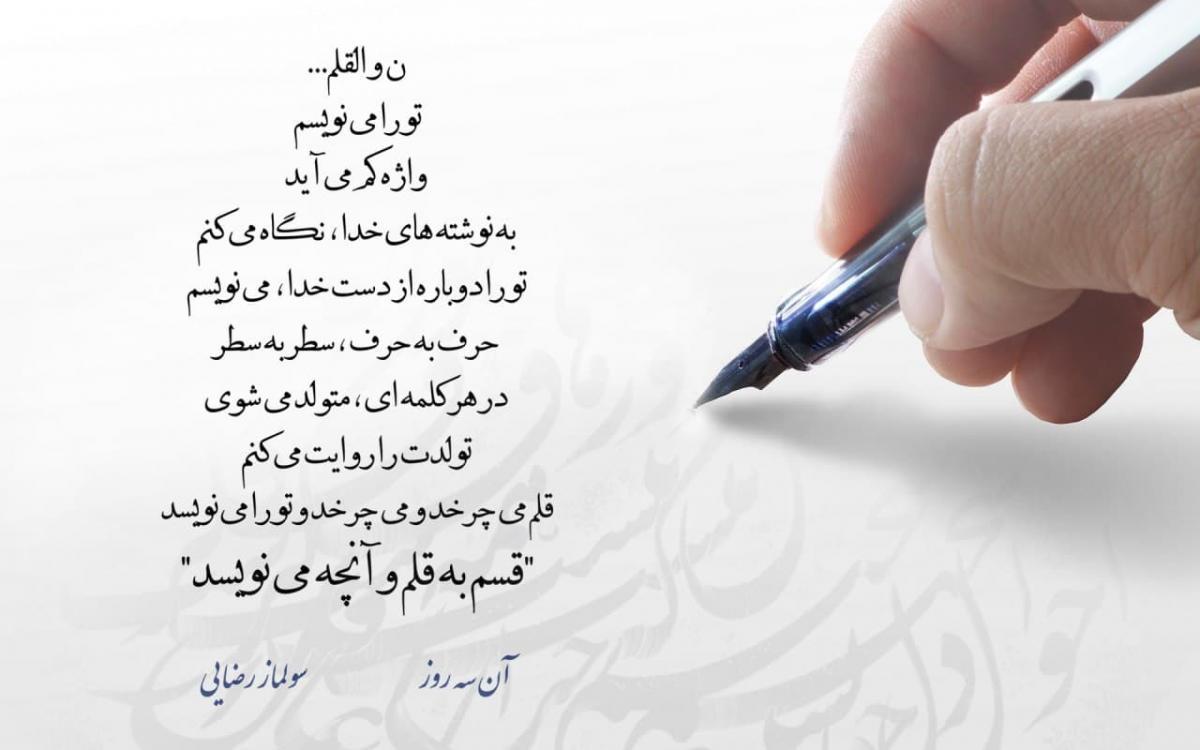 ن والقلم...
تو را می نویسم
واژه کم می آید
به نوشته های خدا، نگاه می کنم
تو را دوباره از دست خدا، می نویسم
حرف به حرف، سطر به سطر
در هر کلمه ای، متولد می شوی
تولدت را روایت می کنم
قلم می چرخد و می چرخد و تو را می نویسد
"قسم به قلم و آنچه می نویسد"
آن سه روز سولماز رضایی